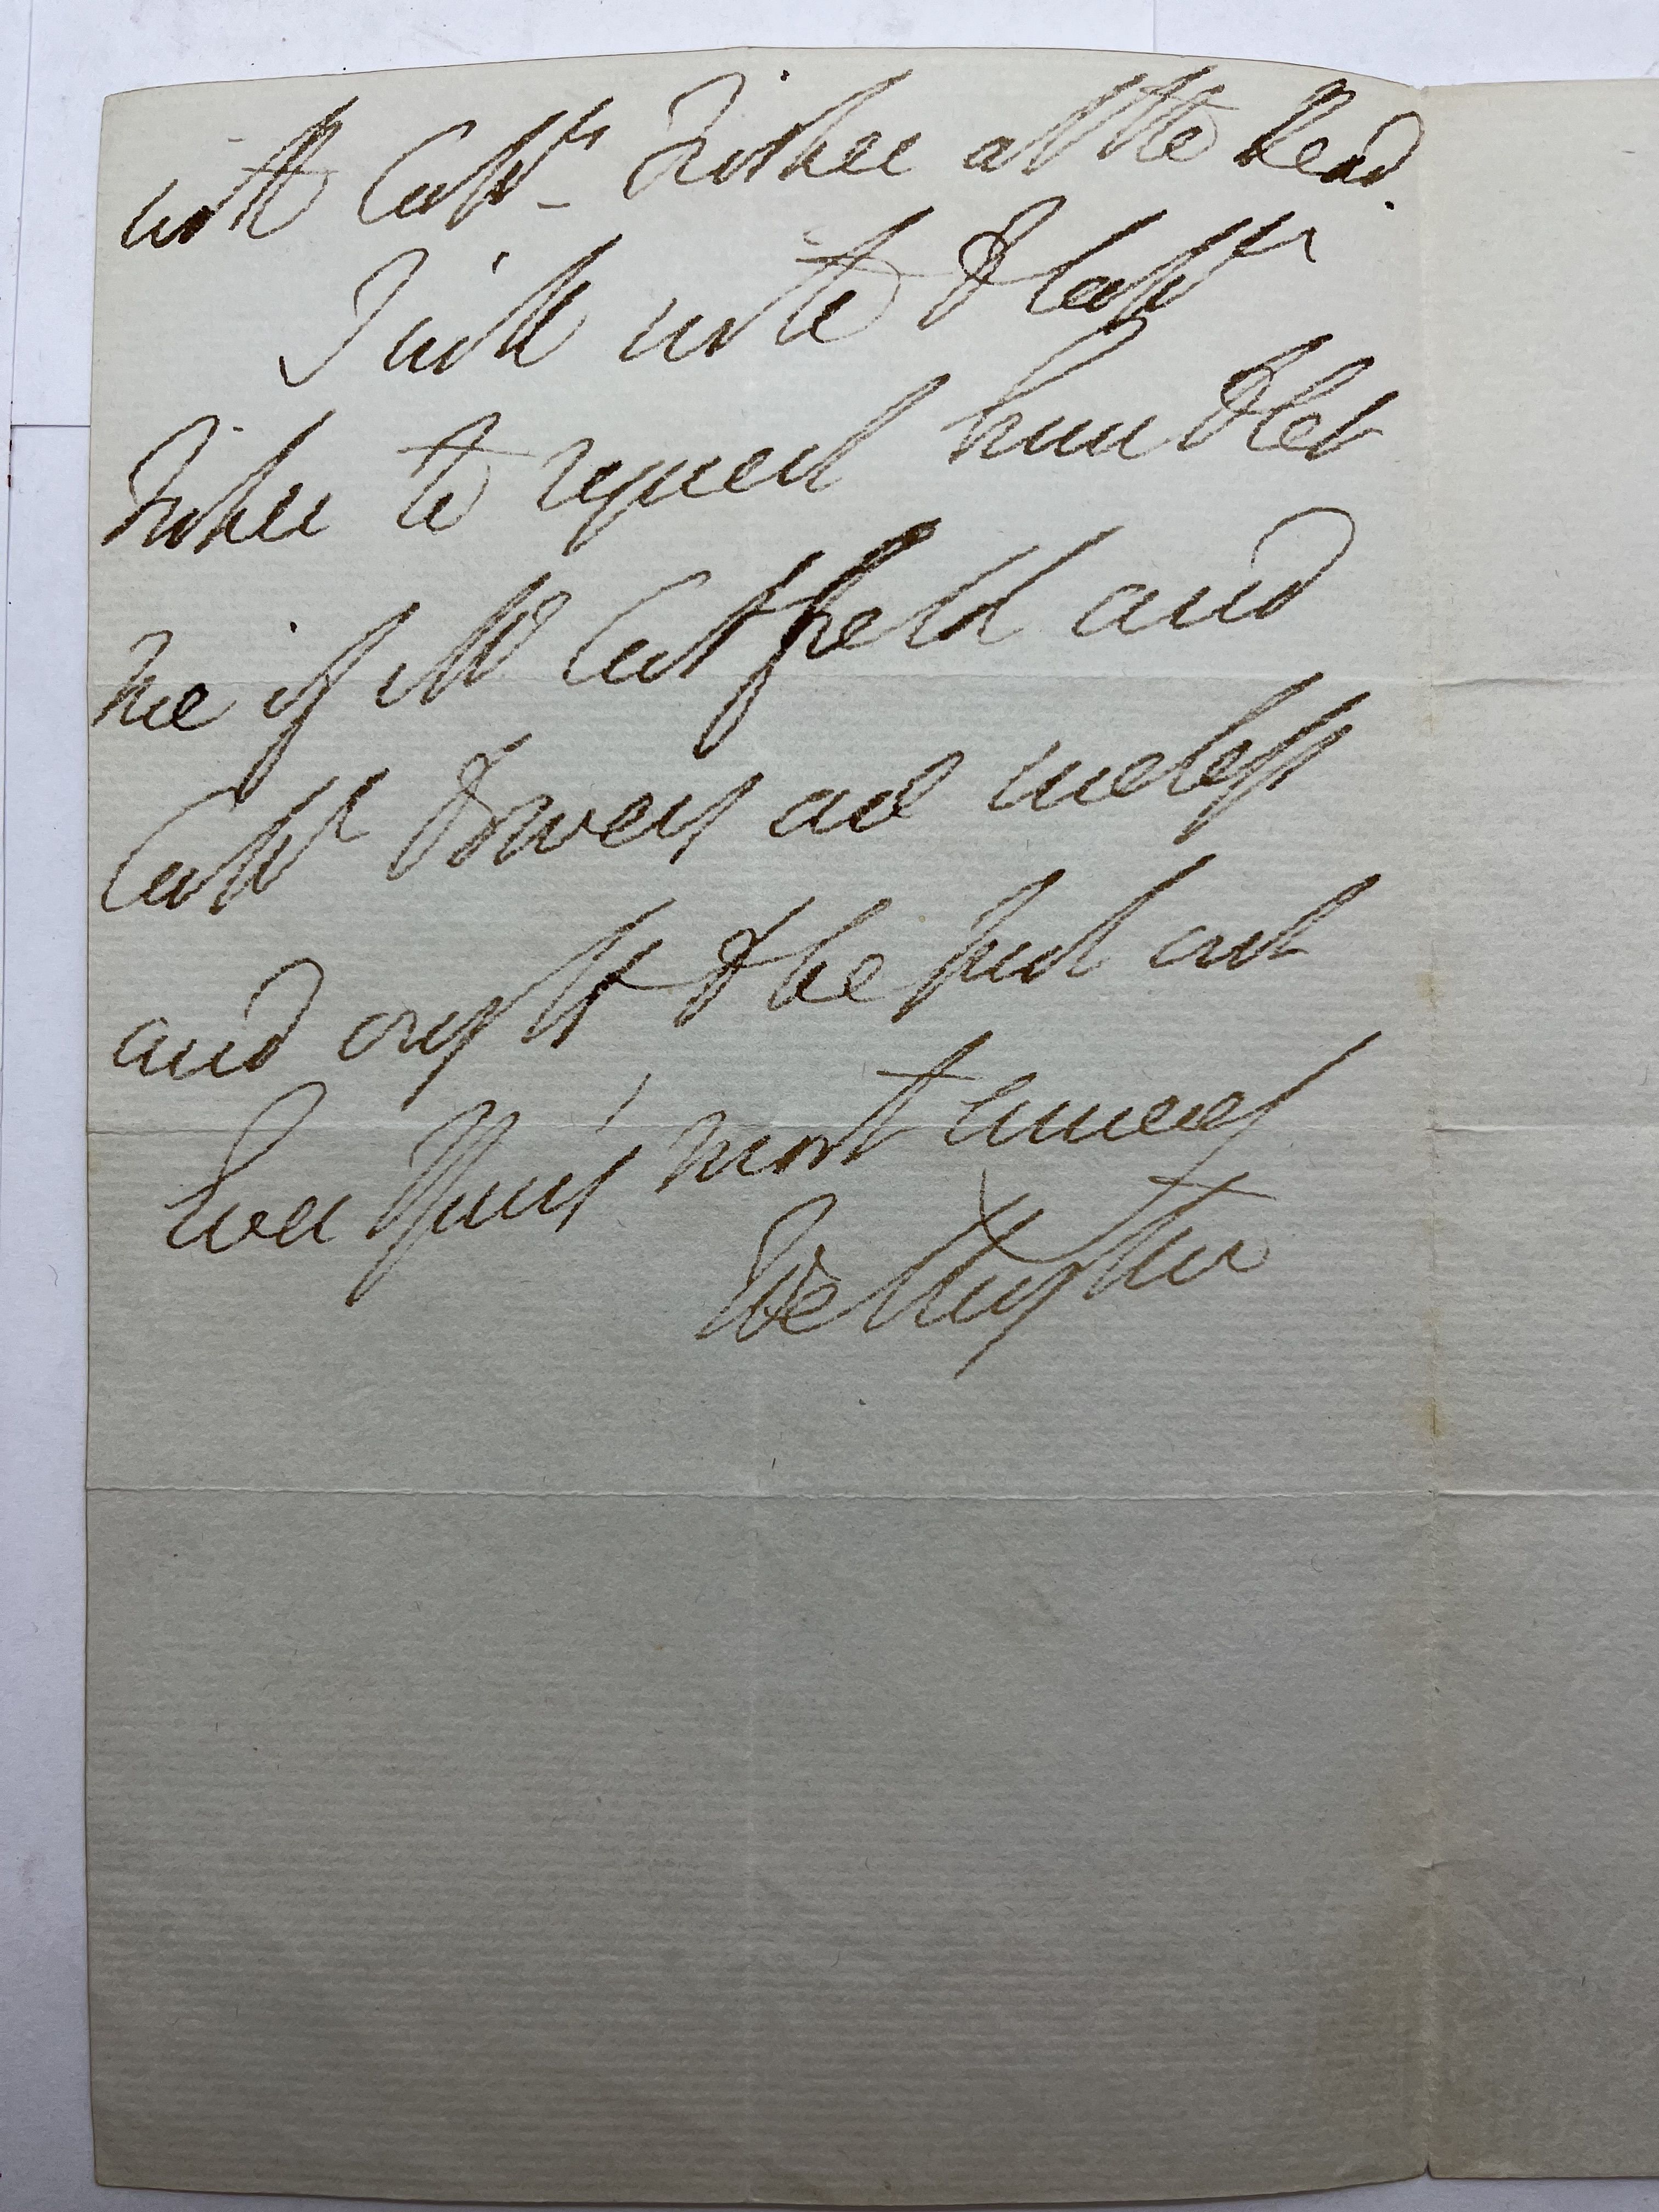 with Capt.n Fisher at the Head.
I will write to Capt.n
Fisher to request him to let
me if Mr Catfield and
Capt.n are useless
and ought to be put out
Ever Yours most sincerely
Wellington